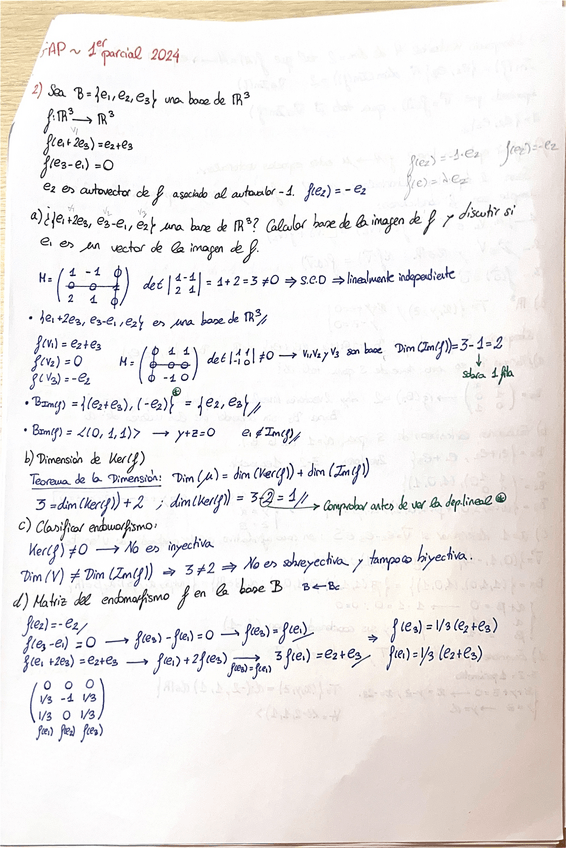 AP ~ 1er parcial 2024
2) Sea B = {e₁, e₂, e₃} una base de ℝ³
f: ℝ³ → ℝ³
f(e₁+2e₃) = e₂+e₃
f(e₃-e₁) = 0
f(e₂) = -1·e₂ f(e₂) = -e₂
f(e) = λe₂
e₂ es autovector de f asociado al autovalor -1. f(e₂) = -e₂
a) ¿{e₁+2e₃, e₃-e₁, e₂} una base de ℝ³? Calcular base de la imagen de f y discutir si
e₁ es un vector de la imagen de f.
M = (1 -1 0
0 0 1
2 1 0) det |1 -1
2 1| = 1+2 = 3 ≠ 0 ⇒ S.C.D ⇒ linealmente independiente
• {e₁+2e₃, e₃-e₁, e₂} es una base de ℝ³//
f(v₁) = e₂+e₃
f(v₂) = 0
f(v₃) = -e₂
M = (0 1 1
0 0 0
0 -1 0) det |1 1
-1 0| ≠ 0 → v₁, v₂, v₃ son base Dim(Im(f)) = 3-1 = 2
↓
sobra 1 fila
• B Im(f) = {(e₂+e₃), (-e₂)} = {e₂, e₃}//
• B Im(f) = <(0, 1, 1)> → y+z=0 e₁ ∉ Im(f)//
b) Dimensión de Ker(f)
Teorema de la Dimensión: Dim(μ) = dim(Ker(f)) + dim(Im f)
3 = dim(Ker(f)) + 2 ; dim(Ker(f)) = 3-2 = 1// → Comprobar antes de var la dep.lineal
c) Clasificar endomorfismo:
Ker(f) ≠ 0 → No es inyectiva
Dim(V) ≠ Dim(Im(f)) ⇒ 3≠2 ⇒ No es sobreyectiva y tampoco biyectiva.
d) Matriz del endomorfismo f en la base B B ← Bc
f(e₂) = -e₂
f(e₃-e₁) = 0 → f(e₃) - f(e₁) = 0 → f(e₃) = f(e₁) ⇒ f(e₃) = 1/3 (e₂+e₃)
f(e₁+2e₃) = e₂+e₃ → f(e₁) + 2f(e₃) → 3f(e₁) = e₂+e₃ f(e₁) = 1/3 (e₂+e₃)
f(e₃)=f(e₁)
(0 0 0
1/3 -1 1/3
1/3 0 1/3)
f(e₁) f(e₂) f(e₃)